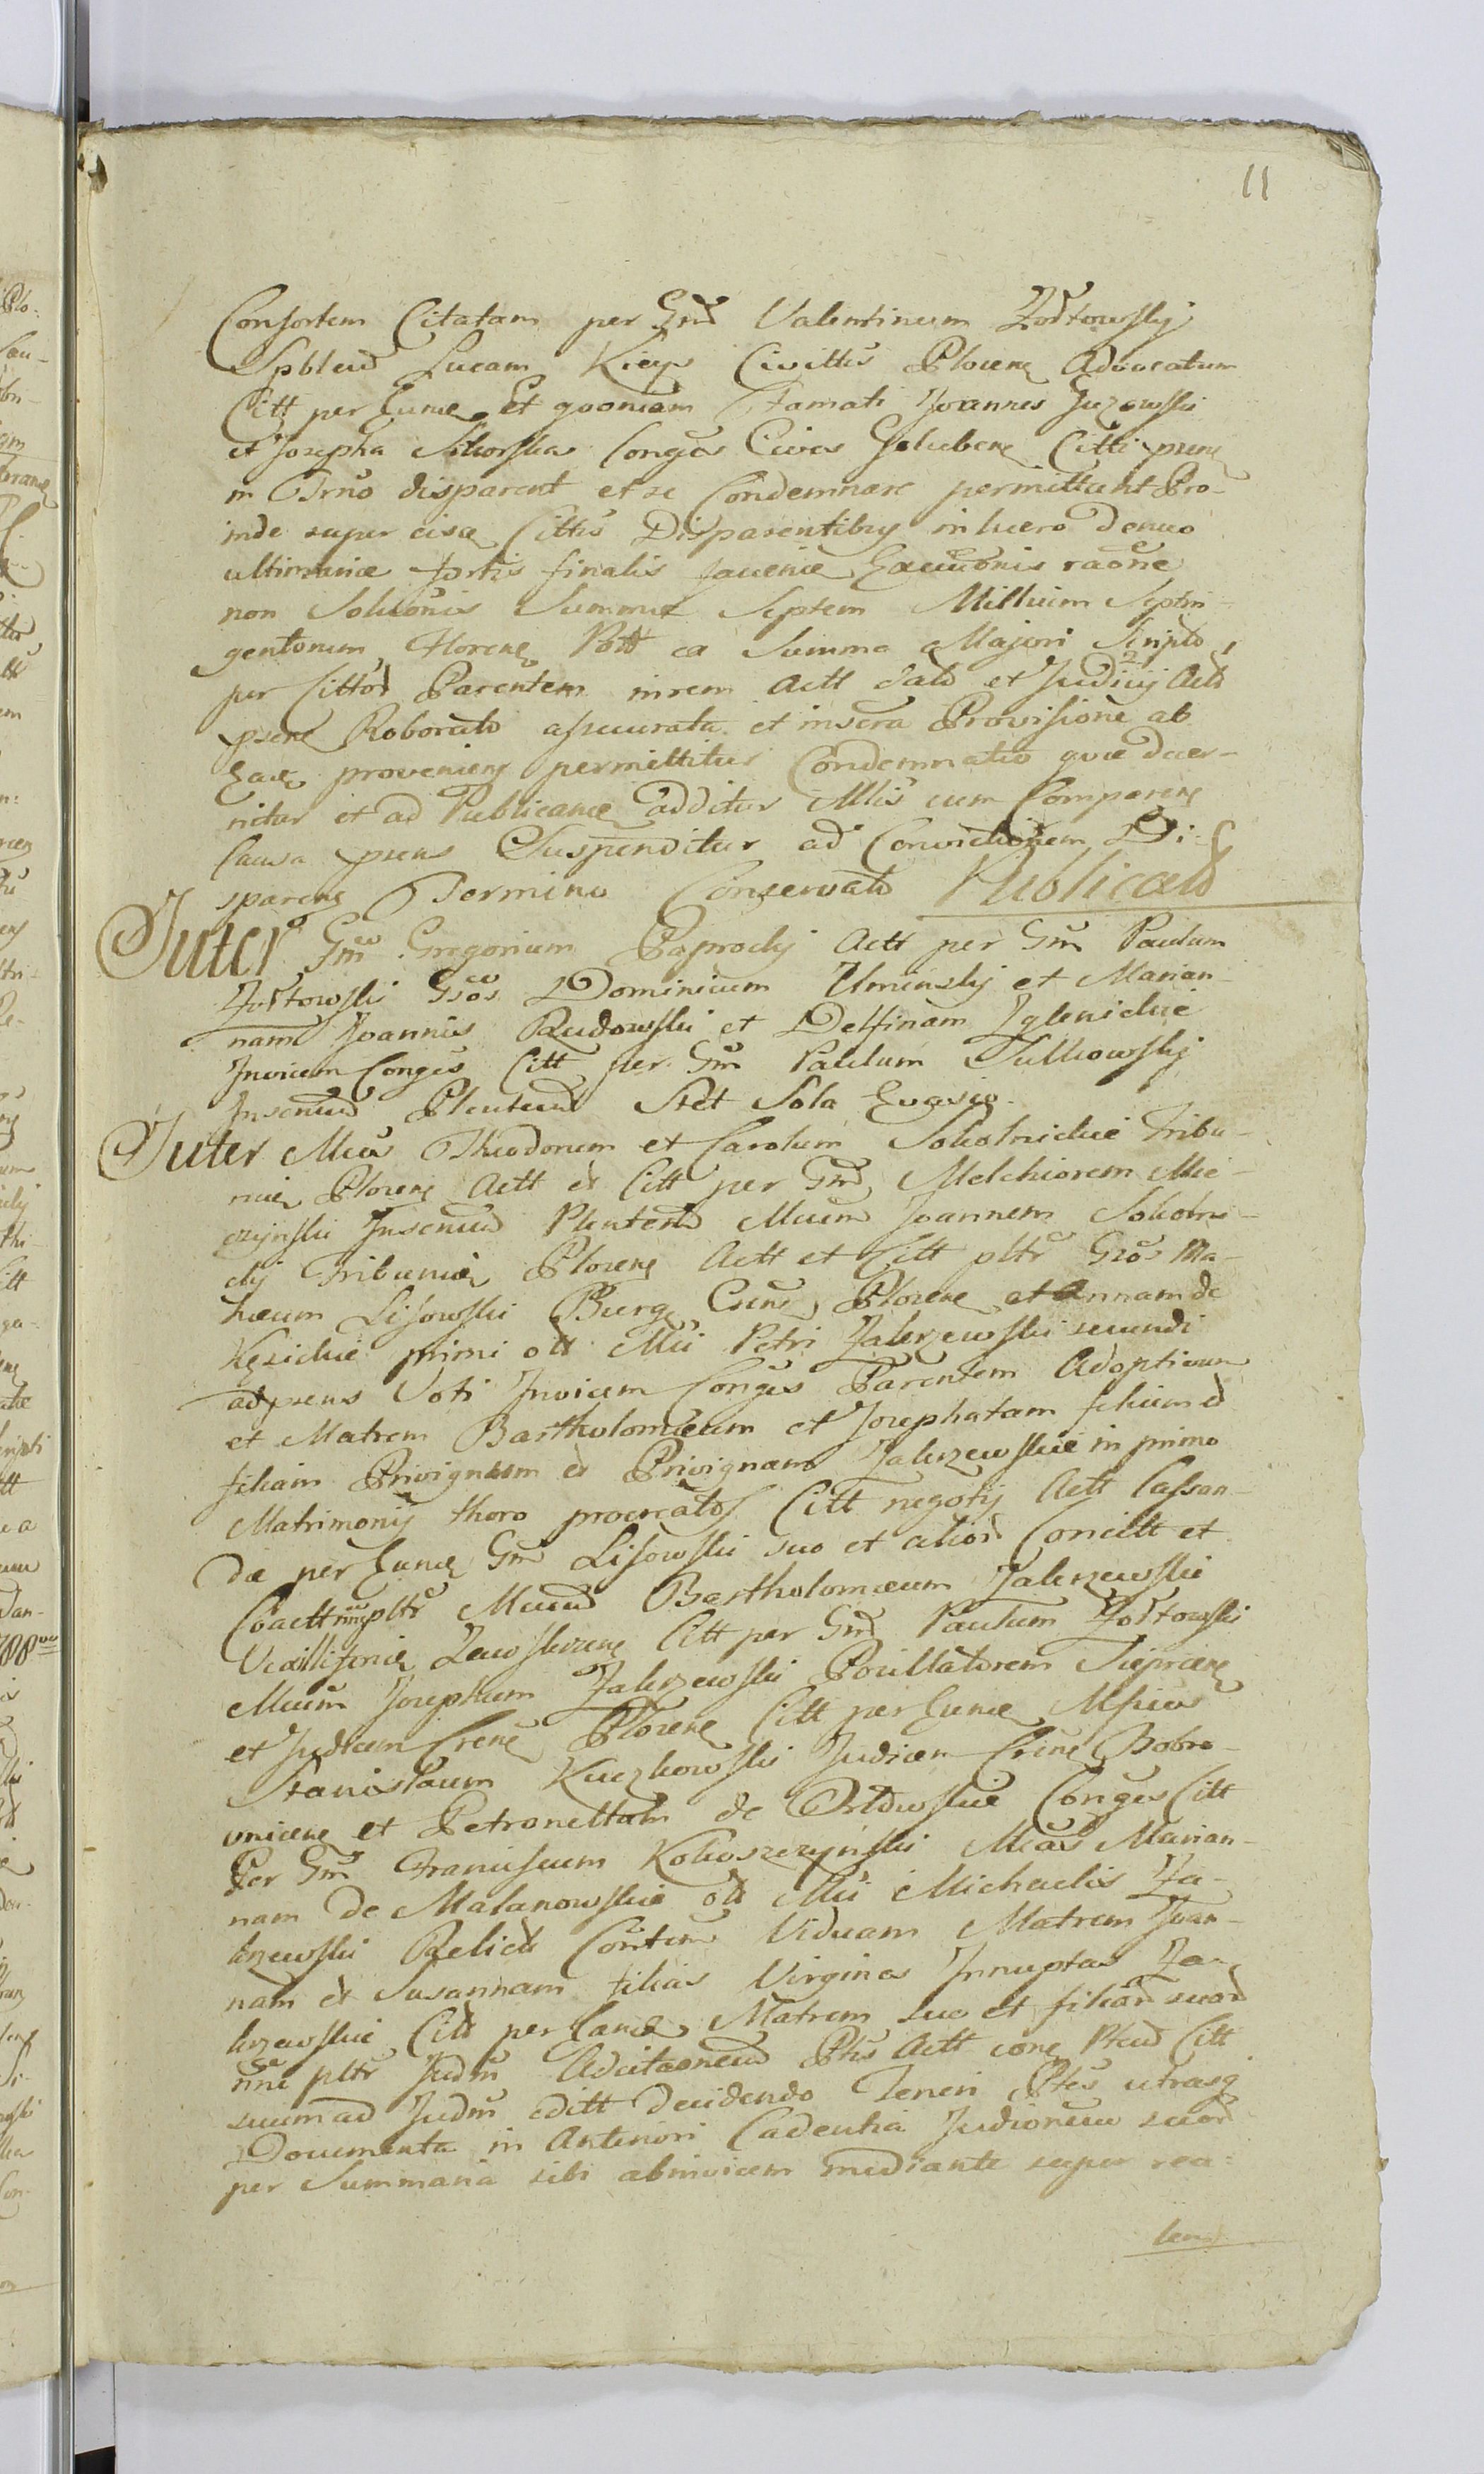 11
Consortem Citatam per Gnd Valentinum Zołtowsky
Spblem Lucam Kieys Civittis Plocen Advocatum
Citt per Eunde Et quoniam Famati Joannes Guzowski
et Josepha Sikorska Conges Cives Golubens Citti prens
in Trno disparent et se Condemnare permittunt Pro-
inde super eisdem Cittis Disparentibus in lucro denuo
ultimariae fortis finalis raone
non Soluonis Summae Septem Millium Septin-
gentorum Florens Pott ea Summa Majori Scripto
per Cittos Parentem in rem Actt dato et Judicij Acto
psens Roborato assecurata et insera Provisione ab
Eade proveniens permittitur Condemnatio quae decer-
nitur et ad Publicande additur Allis cum Comparens
Causa prens Suspenditur ad Convictionem Di-
sparens Termino Conservato Publicato
Inter Gnm Gregorium Paprocky Actt per Gnm Paulum
Zołtowski Gsos Dominicum Uminsky et Marian-
nam Joannis Rudowski et Delfinam Iglenickie
Invicem Conges Citt per Gnm Paulum Sulkowsky
Insenud Plenteud Stet Sola Evasio
Inter Mcos Theodorum et Carolum Sokolnickie Tribu-
nie Plocens Actt et Citt per Gnd Melchiorem Mie-
czynski Insenud Plentend Mcum Joannem Sokolni-
cky Tribunie Plocens Actt et Citt pltr Gsos Ma-
thaeum Lisowski Burg Csens Plocens et Annam de
Kęsickie primi olt Mci Petri Zakrzewski secundi
adprens Voti Invicem Conges Parentem Adoptivum
et Matrem Bartholomaeum et Josephatam filium et
filiam Privignum et Privignam Zakrzewskie in primo
Matrimonij thoro procreatos Citt negotij Actt Cassan-
da per Eunde Gnm Lisowski suo et aliord Concitt et
Coactt nne pltr Mcum Bartholomaeum Zakrzewskie
Vexilliferie Zawskrzens Citt per Gnd Paulum Zołtowski
Mcum Josephum Zakrzewski Pocillatorem Sieprcens
et Judicem Crens Plocens Citt per Eunde Mficos
Stanislaum Kuczkowski Judicem Crens Dobrz-
ynicens et Petronellam de Orłowskie Conges Citt
Per Gnm Franciscum Kokoszczynski Mcas Marian-
nam de Malanowskie olt Mci Michaelis Za-
krzewski Relict Contem Viduam Matrem Joan-
nam et Susannam filias Virgines Innuptas Za-
krzewskie Citt per Eande Matrem suo et filiard suord
nne pltr Judm Adcitaoneud Ptis Actt cone Pteud Citt
suum ad Judm editt Decidendo Teneri Ptes utrasq
Documenta in Anteriori Cadentia Judiorum suord
per Summaria sibi abinvicem mediante super rea-
lem